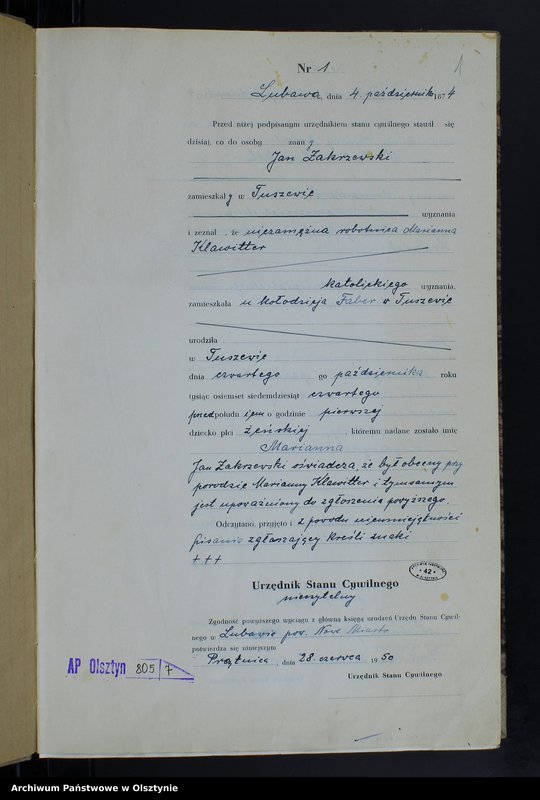 Nr 1
1
Lubawa, dnia 4. października 1874
Przed niżej podpisanym urzędnikiem stanu cywilnego stawił się
dzisiaj, co do osoby znany
Jan Zakrzewski
zamieszkały w Tuszewie
wyznania
i zeznał, że niezamężna robotnica Marianna
Klawitter
katolickiego wyznania,
zamieszkała u kołodzieja Faber w Tuszewie
urodziła
w Tuszewie
dnia czwartego go października roku
tysiąc osiemset siedemdziesiąt czwartego
przedpołudniem o godzinie pierwszej
dziecko płci żeńskiej, któremu nadane zostało imię
Marianna
Jan Zakrzewski oświadcza, że był obecny przy
porodzie Marianny Klawitter i tymsamym
jest upoważniony do zgłoszenia powyższego.
Odczytano, przyjęto i z powodu nieumiejętności
pisania zgłaszający kreśli znaki
+++
42
Urzędnik Stanu Cywilnego
nieczytelny
Zgodność powyższego wyciągu z główną księgą urodzeń Urzędu Stanu Cywil-
nego w Lubawie pow. Nowe Miasto
potwierdza się niniejszym
Prątnica, dnia 28. czerwca 1950
Urzędnik Stanu Cywilnego
AP Olsztyn 805/7
Archiwum Państwowe w Olsztynie